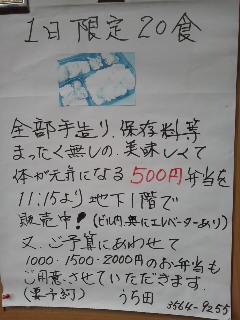 1日限定20食
全部手造り、保存料等
まったく無しの、美味しくて
体が元気になる500円弁当を
11:15より地下1階で
販売中!(ビル内、奥にエレベーターあり)
又、ご予算にあわせて
1000・1500・2000円のお弁当も
ご用意させていただきます。
(要予約) うち田 3564-9255